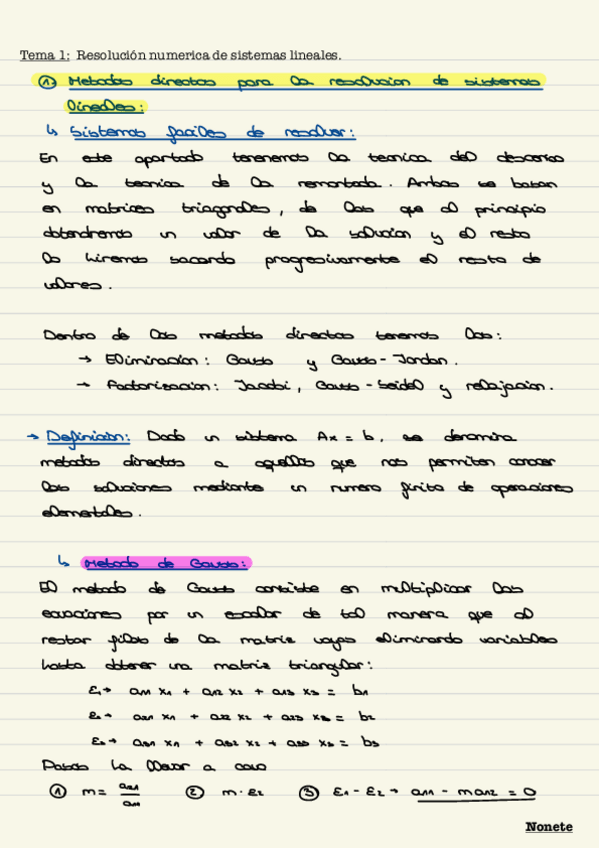 Tema 1: Resolución numerica de sistemas lineales.
① Metodos directos para la resolucion de sistemas
lineales:
↳ Sistemas faciles de resolver:
En este apartado tenemos la tecnica del descenso
y la tecnica de la remontada. Ambas se basan
en matrices triagonales, de las que al principio
obtendremos un valor de la solucion y el resto
lo hiremos sacando progresivamente el resto de
valores.
Dentro de los metodos directos tenemos los:
→ Eliminacion: Gauss y Gauss-Jordan.
→ Factorizacion: Jacobi, Gauss-Seidel y relajacion.
→ Definicion: Dado un sistema Ax = b, se denomina
metodos directos a aquellos que nos permiten conocer
las soluciones mediante un numero finito de operaciones
elementales.
↳ Metodo de Gauss:
El metodo de Gauss consiste en multiplicar las
ecuaciones por un escalar de tal manera que al
restar filas de la matriz vayas eliminando variables
hasta obtener una matriz triangular:
E₁→ a₁₁ x₁ + a₁₂ x₂ + a₁₃ x₃ = b₁
E₂→ a₂₁ x₁ + a₂₂ x₂ + a₂₃ x₃ = b₂
E₃→ a₃₁ x₁ + a₃₂ x₂ + a₃₃ x₃ = b₃
Pasos ha llevar a cabo
① m = a₂₁/a₁₁ ② m·E₂ ③ E₁ - E₂ → a₁₁ - m a₁₂ = 0
Nonete